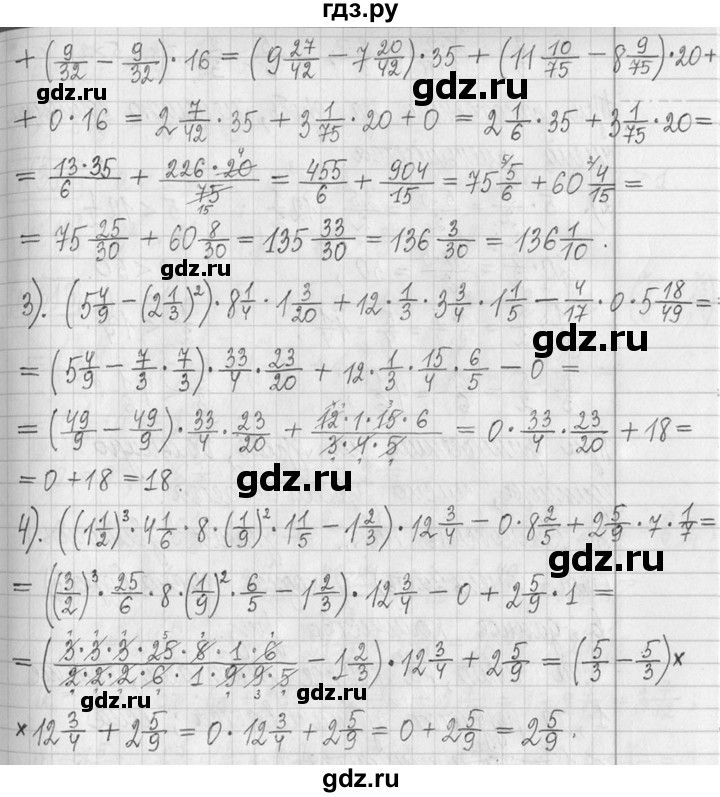 гдз.ру
+ (9/32 − 9/32)·16 = (9 27/42 − 7 20/42)·35 + (11 10/75 − 8 9/75)·20+
gdz.ru
gdz.ru
+ 0·16 = 2 7/42 · 35 + 3 1/75 · 20 + 0 = 2 1/6 · 35 + 3 1/75 · 20 =
= 13·35/6 + 226·20/75 = 455/6 + 904/15 = 75 5/6 + 60 4/15 =
= 75 25/30 + 60 8/30 = 135 33/30 = 136 3/30 = 136 1/10 .
gdz.ru
gdz.ru
3). (5 4/9 − (2 1/3)²)·8 1/4 · 1 3/20 + 12 · 1/3 · 3 3/4 · 1 1/5 − 4/17 · 0 · 5 18/49 =
= (5 4/9 − 7/3 · 7/3)· 33/4 · 23/20 + 12 · 1/3 · 15/4 · 6/5 − 0 =
= (49/9 − 49/9)· 33/4 · 23/20 + 12·1·15·6/3·4·5 = 0 · 33/4 · 23/20 + 18 =
= 0 + 18 = 18.
gdz.ru
4). ((1 1/2)³ · 4 1/6 · 8 · (1/9)² · 1 1/5 − 1 2/3)· 12 3/4 − 0·8 2/5 + 2 5/9 · 7 · 1/7 =
gdz.ru
= ((3/2)³ · 25/6 · 8 · (1/9)² · 6/5 − 1 2/3)· 12 3/4 − 0 + 2 5/9 · 1 =
= (3·3·3·25·8·1·6/2·2·2·6·1·9·9·5 − 1 2/3)· 12 3/4 + 2 5/9 = (5/3 − 5/3)×
gdz.ru
gdz.ru
× 12 3/4 + 2 5/9 = 0 · 12 3/4 + 2 5/9 = 0 + 2 5/9 = 2 5/9 .
gdz.ru